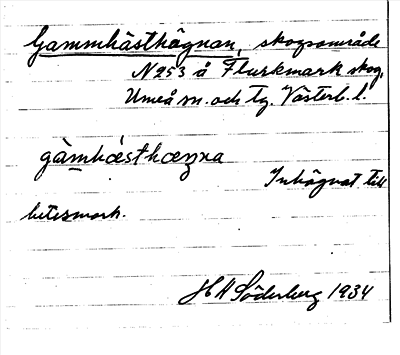 Gammhästhägnan, skogsområde
N 253 å Flurkmark skog,
Umeå sn. och tg. Västerb. l.
gàmhæsthæŋna
Inhägnat till
betesmark.
H A Söderberg 1934